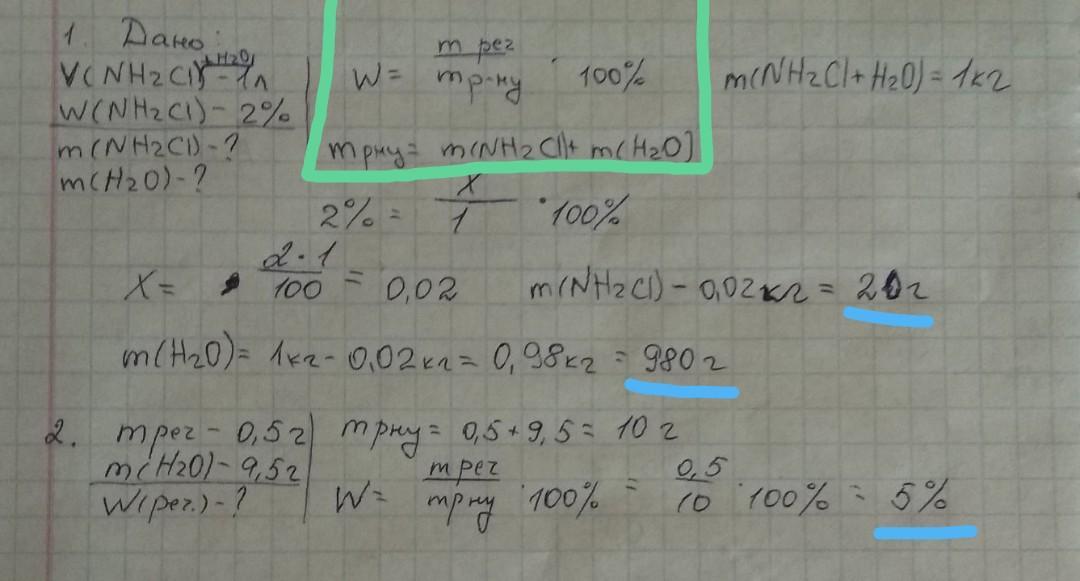 1. Дано:
V(NH2Cl+H2O) - 1л
W(NH2Cl) - 2%
m(NH2Cl) - ?
m(H2O) - ?
W = m рег / m р-ну · 100%
m рну = m(NH2Cl) + m(H2O)
m(NH2Cl + H2O) = 1кг
2% = X / 1 · 100%
X = 2·1 / 100 = 0,02 m(NH2Cl) - 0,02кг = 20г
m(H2O) = 1кг - 0,02кг = 0,98кг = 980г
2. m рег - 0,5г
m(H2O) - 9,5г
W(рег.) - ?
m рну = 0,5 + 9,5 = 10г
W = m рег / m рну · 100% = 0,5 / 10 · 100% = 5%